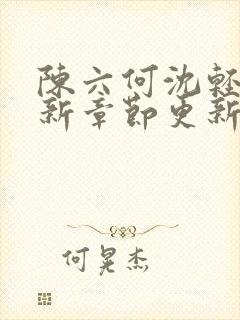 陳六何沈輕
新章節更新
何晃杰